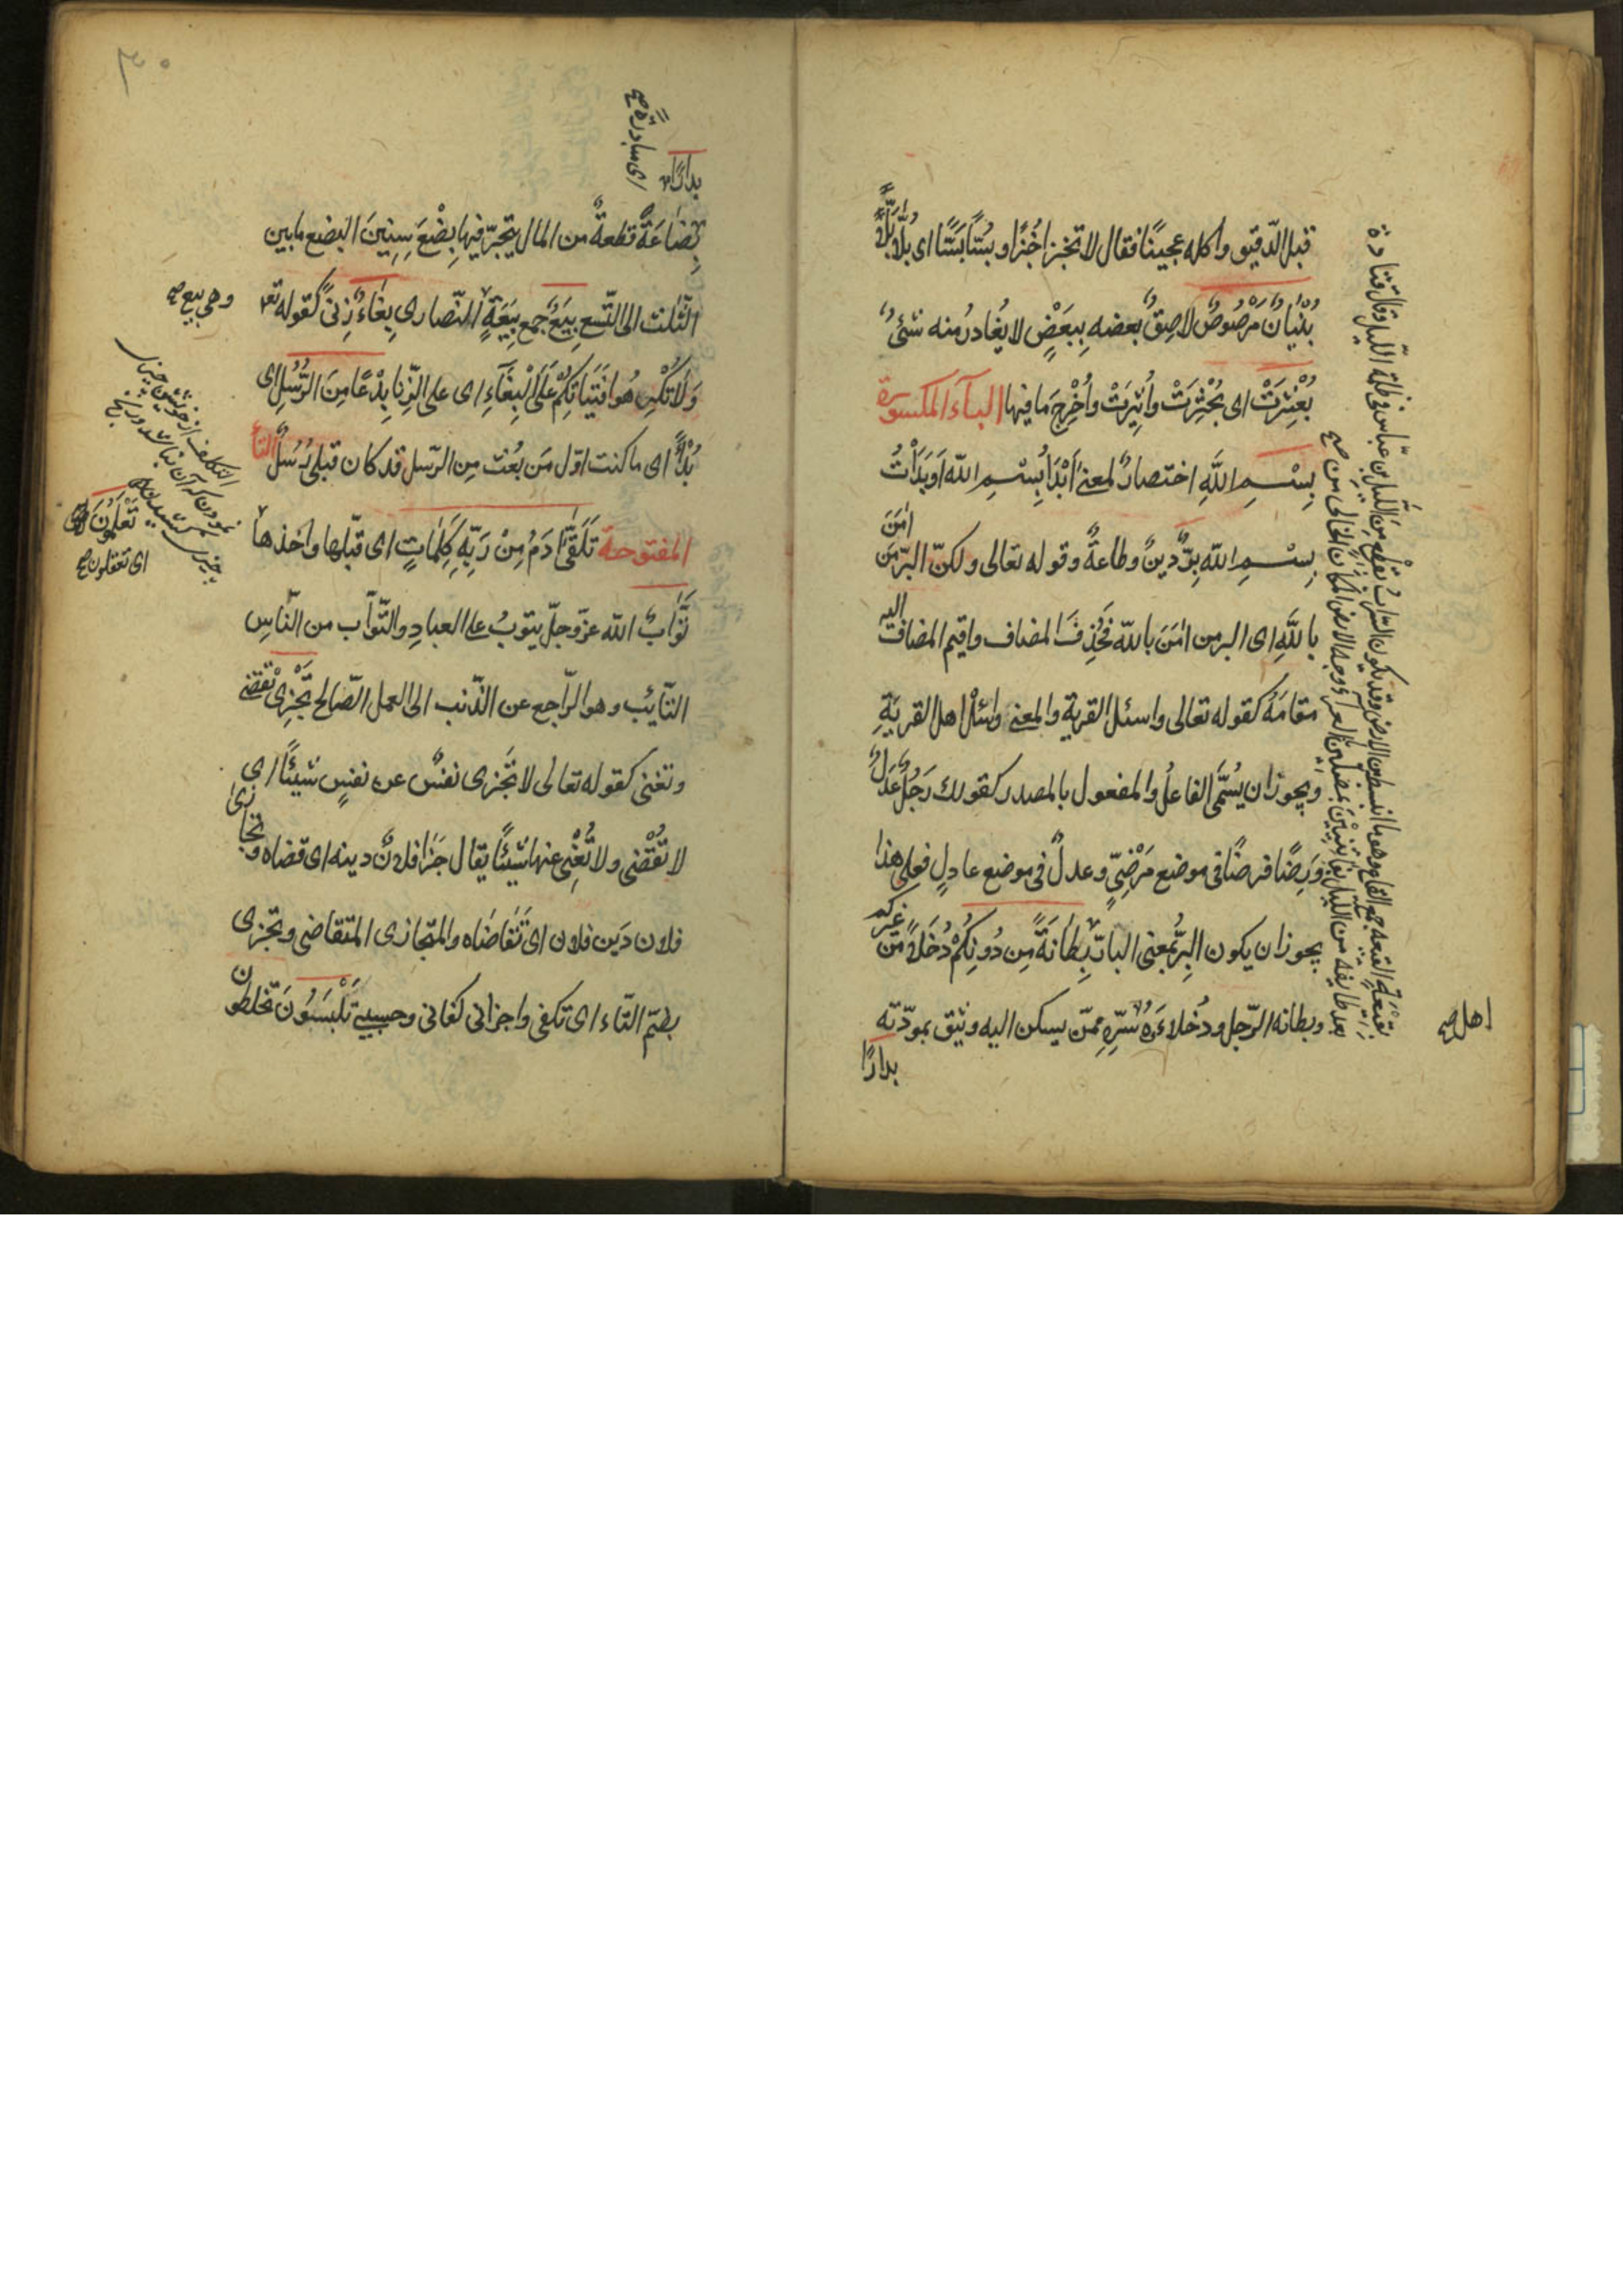 قبل الدّقيق واكله عجينًا فقال لا تخبزا خُبْزًا وبُسّا بَسًّا اى بُلّا بَلًّا
بُنْيَانٌ مَرْصُوصٌ لاصِقٌ بعضه بِبَعْضٍ لا يُغادرُ منه شئٌ
بُعْثِرَتْ اى بُحْثِرَتْ وأُثِيرَتْ وأُخْرِجَ مَا فيها البآء المكسورة
بِسْمِ اللّهِ اختصارٌ لمعنى أَبْدَأُ بِسْمِ اللّه اَوْ بَدَأْتُ
بِسْمِ اللّه بِرٌّ دِينٌ وطاعةٌ وقوله تعالى ولكنّ البِرَّ مَن
اٰمَنَ
باللّهِ اى البر من اٰمَنَ باللّه فَحُذِفَ المضاف واقيم المضاف اليه
مقامَهُ كقوله تعالى واسئل القرية والمعنى واسْئَلْ اهل القريةِ
ويجوز ان يُسَمَّى الفاعلُ والمفعول بالمصدر كقولك رَجُلٌ عَدْلٌ
وَرِضًا فرضًا فى موضع مَرْضِىٍّ وعدلٌ فى موضع عادلٍ فعلى هذا
يجوز ان يكون البِرُّ بمعنى البارّ بِطَانَةً مِن دُونِكُمْ دُخَلَاءَ مِن
غيركم
وبطانه الرّجل ودُخلاءَهُ سُرِّهِ ممّن يسكن اليه ويَثِق بمودّته
بدارًا
اهل صح
وقال قتادة
٣٠
بدارًا
اى مبادرةً صح
بِضَاعَةً قطعةٌ من المال يتجرّ فيها بِضْعَ سِنِينَ البضع مابين
الثّلث الى التّسع بِيَعٌ جمع بِيعَةٍ النّصارى بِغَاءٌ زِنىً كقوله تع
وهى بيع صح
وَلَا تُكْرِهُوا فَتَيَاتِكُمْ عَلَى الْبِغَآءِ اى على الزّنا بِدْعًا مِنَ الرُّسُلِ اى
بُدْأً اى ما كنت اوّل مَن بُعْث مِن الرّسل قد كان قبلى رُسُلٌ التآ
المفتوحة تَلَقَّىٰ اٰدَمُ مِنْ رَبِّهِ كَلِمَاتٍ اى قبّلها واخذها
تَعْلَمُونَ
اى تعقلون صح
تَوَّابٌ اللّه عزّوجلّ يتوبُ على العبادِ والتّوّاب من النّاسِ
التّائِبُ وهو الرّاجع عن الذّنب الى العمل الصّالح تَجْزِى تقضى
وتغنى كقوله تعالى لا تَجْزى نفسٌ عن نفسٍ شيئًا اى
لا تَقْضى ولا تُغْنِى عنها شيئًا يقال جَزا فلانٌ دينه اى قضاه وتجازى
فلان دَين فلان اى تَقَاضَاه والمتجازى المتقاضى وتجزى
بضمّ التّاء اى تكفى واجزانى كفانى وحسبى تَلْبَسُونَ تخلطون